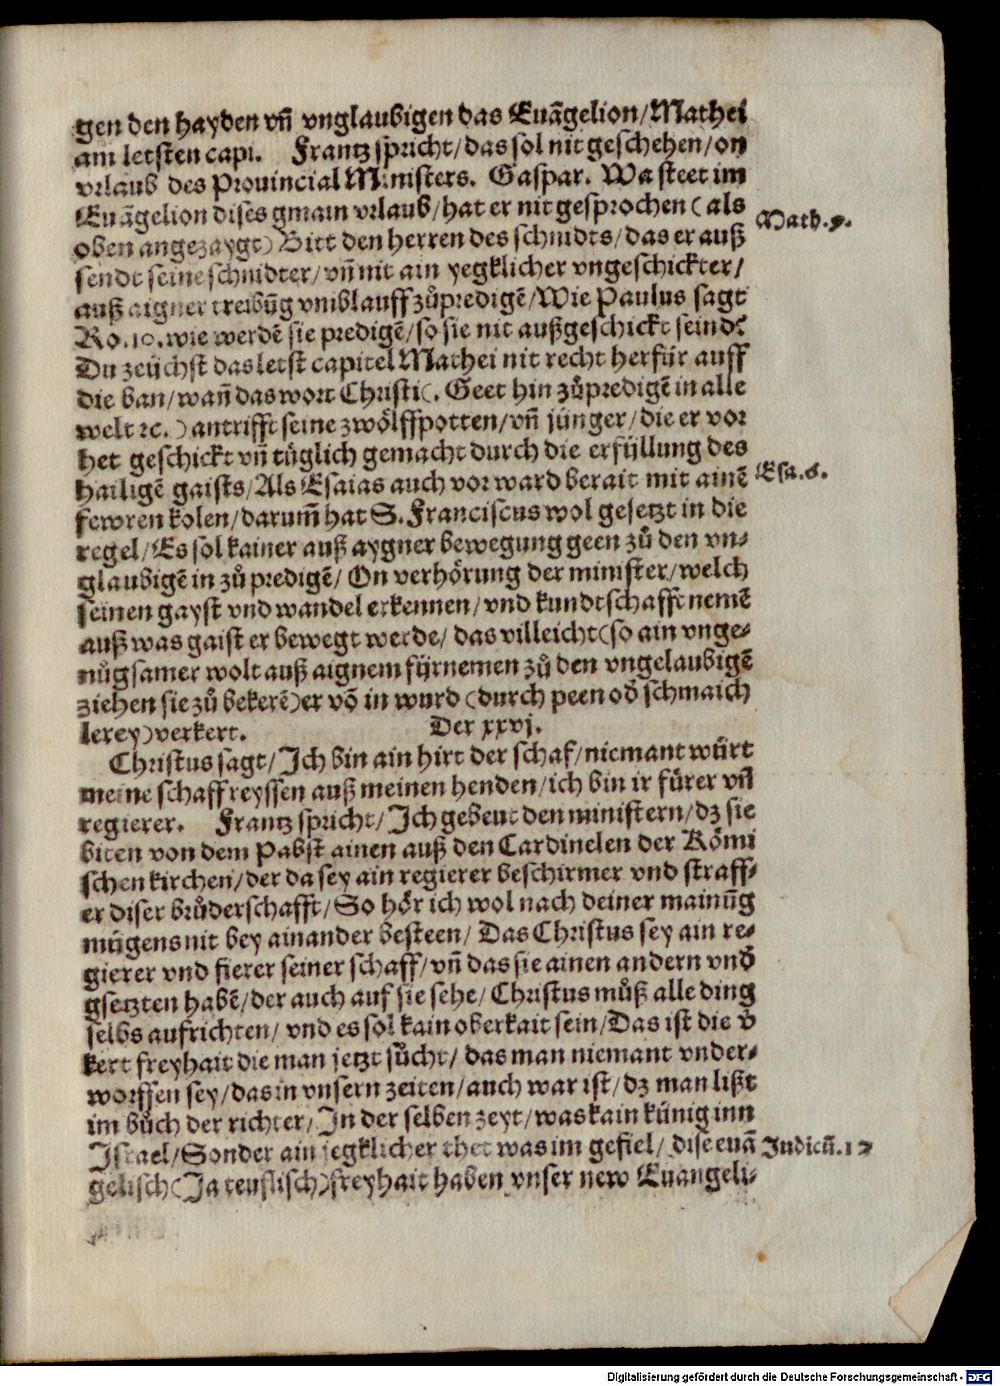 gen den hayden vñ vnglaubigen das Euãgelion/Mathei
am letsten capi. Frantz spricht/das sol nit geschehen/on
vrlaub des Prouincial Ministers. Gaspar. Wa steet im
Euãgelion dises gmain vrlaub/hat er nit gesprochen (als
Math. 9.
oben angezaygt) Bitt den herren des schnidts/das er auß
sendt seine schnidter/vñ nit ain yegklicher vngeschickter/
auß aigner treibũg vmblauff zůpredigẽ/Wie Paulus sagt
Ro. 10. wie werdẽ sie predigẽ/so sie nit außgeschickt seind?
Du zeüchst das letst capitel Mathei nit recht herfür auff
die ban/wañ das wort Christi (. Geet hin zůpredigẽ in alle
welt ꝛc. ) antrifft seine zwölffpotten/vñ jünger/die er vor
het geschickt vñ tüglich gemacht durch die erfüllung des
hailigẽ gaists/Als Esaias auch vor ward berait mit ainẽ
Esa. 6.
fewren kolen/darum̃ hat S. Franciscus wol gesetzt in die
regel/Es sol kainer auß aygner bewegung geen zů den vn-
glaubigẽ in zů predigẽ/On verhörung der minister/welch
seinen gayst vnd wandel erkennen/vnd kundtschafft nemẽ
auß was gaist er bewegt werde/das villeicht (so ain vnge-
nůgsamer wolt auß aignem fürnemen zů den vngelaubigẽ
ziehen sie zů bekerẽ) er võ in wurd (durch peen oď schmaich
lerey) verkert. Der xxvj.
Christus sagt/Ich bin ain hirt der schaf/niemant würt
meine schaff reyssen auß meinen henden/ich bin ir fürer vñ
regierer. Frantz spricht/Ich gebeut den ministern/dz sie
biten von dem Pabst ainen auß den Cardinelen der Römi
schen kirchen/der da sey ain regierer beschirmer vnd straff-
er diser brůderschafft/So hör ich wol nach deiner mainũg
mügens nit bey ainander besteen/Das Christus sey ain re-
gierer vnd fierer seiner schaff/vñ das sie ainen andern vnď
gsetzten habẽ/der auch auf sie sehe/Christus můß alle ding
selbs aufrichten/vnd es sol kain oberkait sein/Das ist die v̉
kert freyhait die man jetzt sůcht/das man niemant vnder-
worffen sey/das in vnsern zeiten/auch war ist/dz man lißt
im bůch der richter/In der selben zeyt/was kain künig inn
Israel/Sonder ain jegklicher thet was im gefiel/dise euã
Judicũ. 17
gelisch (Ja teuflisch) freyhait haben vnser new Euangeli-
Digitalisierung gefördert durch die Deutsche Forschungsgemeinschaft - DFG